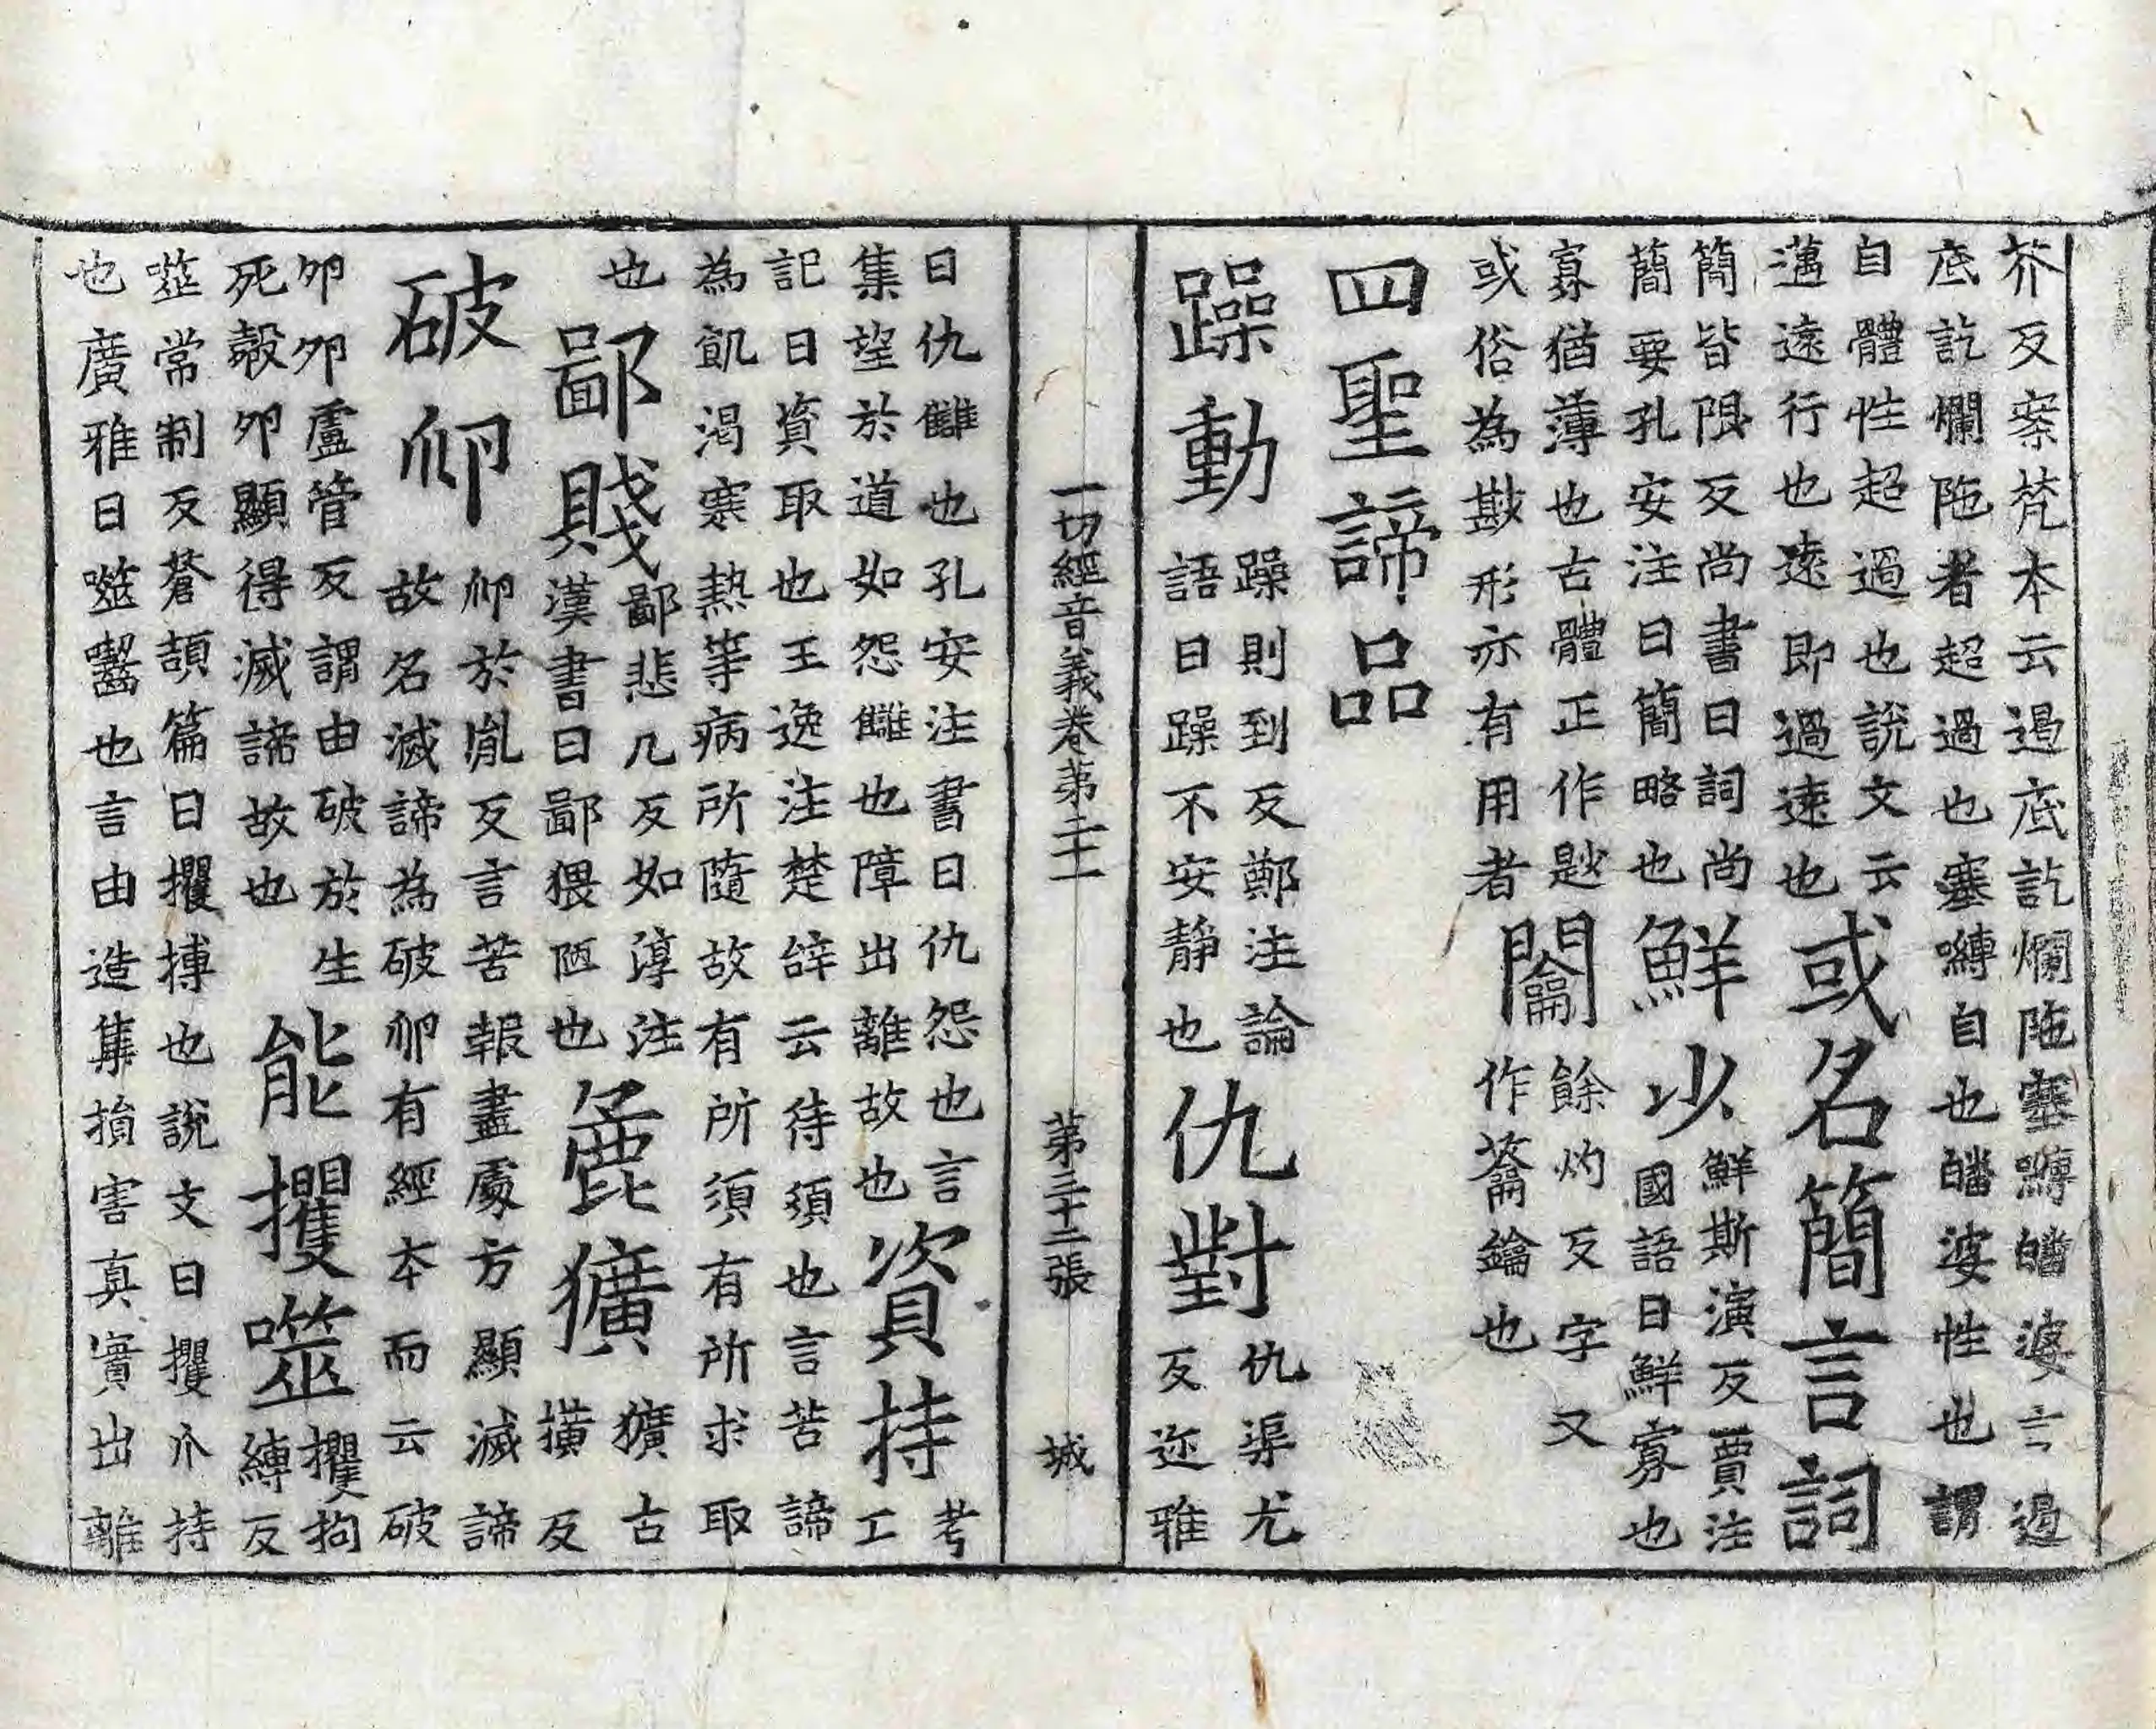 芥反案梵本云過底訖爛陁塞嚩皤婆言過
底訖爛陁者超過也塞嚩自也皤婆性也謂
自體性超過也說文云
邁遠行也遠即過速也
或名簡言詞
簡皆限反尚書曰詞尚
簡要孔安注曰簡略也
鮮少
鮮斯演反賈注
國語曰鮮寡也
寡猶薄也古體正作尟
或俗為尠形亦有用者
闟
餘灼反字又
作籥鑰也
四聖諦品
躁動
躁則到反鄭注論
語曰躁不安靜也
仇對
仇渠尤
反迩雅
一切經音義卷第二十一 第三十二張 城
曰仇讎也孔安注書曰仇怨也言
集望於道如怨讎也障出離故也
資持
考工
記曰資取也王逸注楚辭云待須也言苦諦
為飢渴寒熱等病所隨故有所須有所求取
也
鄙賤
鄙悲几反如淳注
漢書曰鄙猥陋也
麁獷
獷古
撗反
破卵
卵於胤反言苦報盡處方顯滅諦
故名滅諦為破卵有經本而云破
卵卵盧管反謂由破於生
死㲉卵顯得滅諦故也
能攫噬
攫拘
縛反
噬常制反蒼頡篇曰攫搏也說文曰攫爪持
也廣雅曰噬齧也言由造集損害真實出離